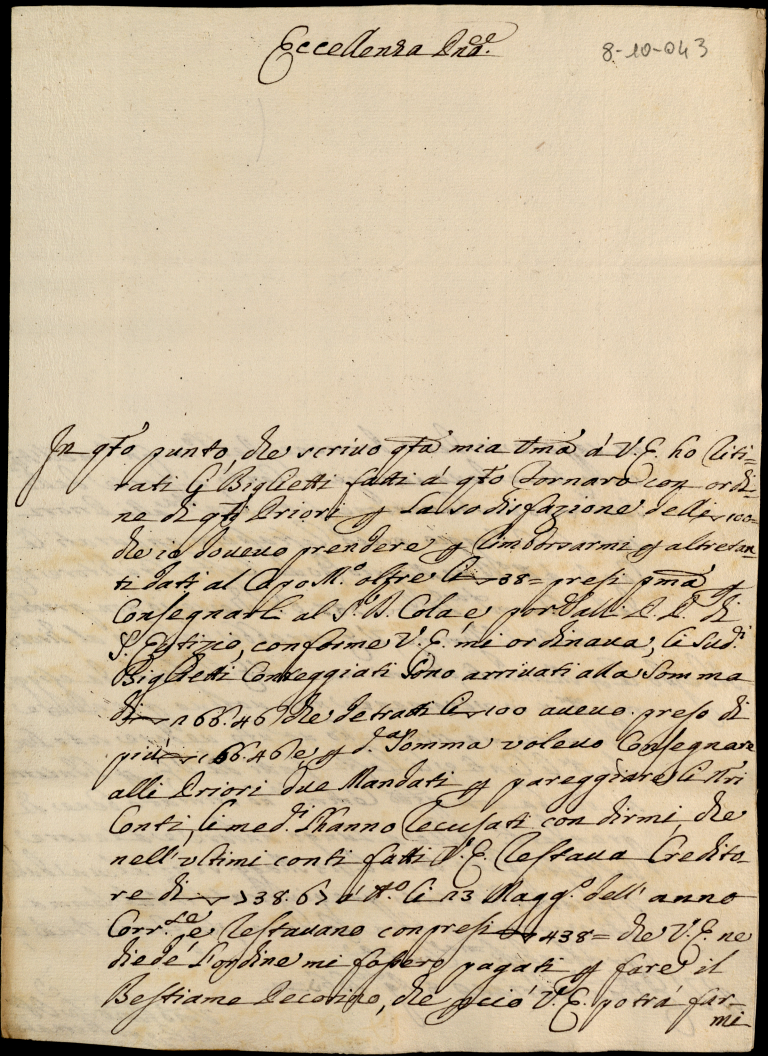 Eccellenza Pñde
8-10-043
In qsto punto, che scrivo qsta mia Uma à V.E. ho riti=
rati li Biglietti fatti à qsto Fornaro con ordi=
ne di qsti Priori p la sodisfazione delle 100=
che io dovevo prendere p rimborsarmi p altretan=
ti dati al Capo M.º oltre li 38= presi pma p
Consegnarli al S.r N. Cola, e portalli P. P. di
S. Eutizio, conforme V.E. mi ordinava, li sud.i
Biglietti Conteggiati sono arrivati alla somma
di 166.46 che detratti li 100 avevo preso di
più 66.46 e p d.a somma volevo Consegnare
alli Priori due Mandati p pareggiare li ntri
Conti, li med.i l'hanno recusati con dirmi, che
nell'ultimi conti fatti V.E. restava Credito=
re di 738.67 à tt.o li 23 Magg.o dell'anno
Corr.te, e restavano compresi 438= che V.E. ne
diede l'ordine mi fossero pagati p fare il
Bestiame Pecorino, che pciò V.E. potrà far=
mi